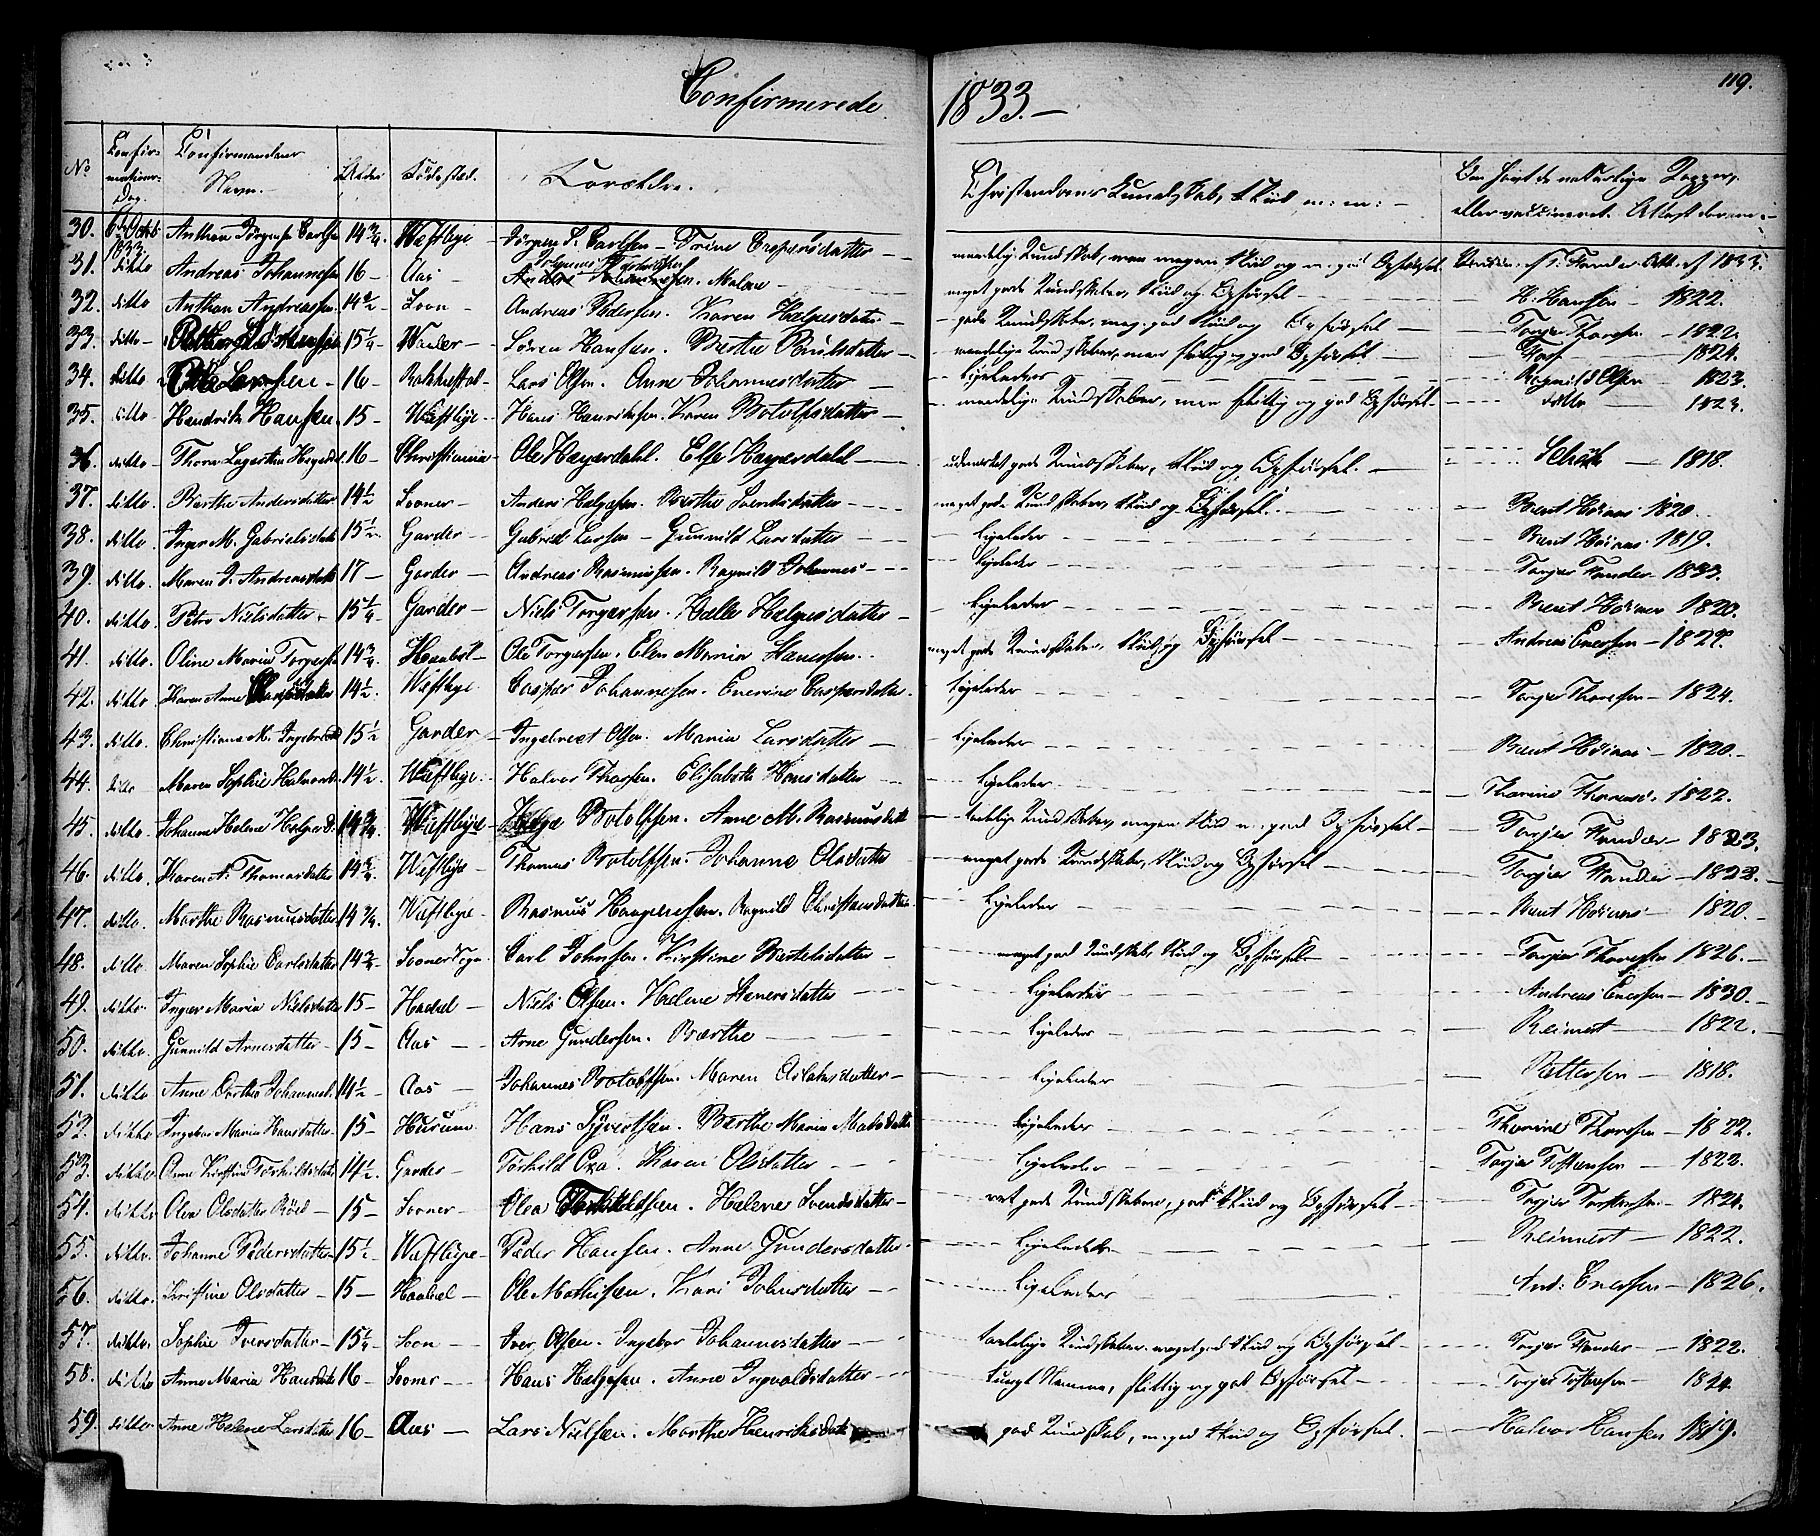 Confirmerede 1833.—
119.
No | Confirmations Dag. | Confirmandernes Navn. | Alder | Fødested. | Forældre. | Christendoms Kundskab, Flid m: m: | Om havt de naturlige Kopper, eller vaccineret. Attest derom
30. 6te Octob 1833 Anthon Jørgensen Carlsen 14 3/4. Westbye — Jørgen Carlsen — Trine Caspersdatter — — maadelig Kundskab, men megen Flid og m. god Opførsel. 1833.
31. ditto Andreas Johannesen 16 — Aas — Malene — meget gode Kundskaber, Flid og Opførsel — H. Hansen — 1822.
32. ditto Anthon Andreassen. 14 1/2 — Soon — Andreas Pedersen. Karen Helgesdatter — gode Kundskaber, meg. god Flid og Opførsel — Torjer Thoresen — 1822.
33. ditto — 15 1/4 — Søren Hansen. Berthe Poulsdatter — maadelige Kundskaber, men flittig og god Opførsel — 1824.
34. ditto Ole Larssen — 16 — Lars Olsen. Anne Johannesdatter — Ligeledes — Ragnild Olsen — 1823.
35. ditto Hendrik Hansen. 15 — Westbye — Hans Henriksen. Karen Botolfsdatter — maadelige Kundskaber, men flittig og god Opførsel — ditto — 1823.
36. ditto. Thora Lagertha Heyerdal 16 — Christiania — Ole Heyerdahl. Else Heyerdahl — udmærket gode Kundskaber, Flid og Opførsel. — 1818.
37. ditto Berthe Andersdatter 14 1/2 — Sooner — Anders Helgesen. Berthe Svendsdatter — — meget gode Kundskaber, Flid og Opførsel. — Berit Hoinæs 1820.
38. ditto. Inger M. Gabrielsdatt 15 1/2 Garder — Gabriel Larsen — Gunnild Larsdatter — Ligeledes — Berit Hoinæs 1819.
39. ditto. Maren J. Andreasdatt 17 — Garder — Andreas Rasmussen. Ragnild Johannes — Ligeledes — Torjer Fander 1833
40. ditto. Petra Nielsdatter — 15 1/4 Garder — Niels Torgersen. Helle Helgesdatter — Ligeledes — Berit Hoinæs 1820.
41. ditto. Oline Maria Torgersd 14 3/4. Haabøl — Ole Torgersen. Elen Maria Hanssen. meget gode Kundskaber, Flid og Opførsel — Andreas Enersen — 1827.
42. ditto. Karen Anne 14 1/2 — Westbye. Casper Johannesen. Enerine Caspersdatter. Ligeledes — Torjer Thoresen — 1824.
43. ditto. Christiane M. Ingebretsd 15 1/2 Garder — Ingebret Olsen. Maria Larsdatter — Ligeledes — Berit Hoinæs — 1820.
44. ditto Maren Sophie Halvorsd. 14 1/2 — Westbye. Halvor Thorsen. Elisabeth Hansdatter — Ligeledes — Thorine Thoresen. 1822.
45. ditto. Johanne Helene Helgesd. 14 3/4. Westbye — Helge Botolfsen. Anne M. Rasmusdatt — Kundskaber, megen Flid m. god Opførsel — Torjer Fander — 1823.
46. ditto. Karen A. Thomasdatter 14 3/4. Westbye — Thomas Botolfsen. Johanne Olsdatter — meget gode Kundskaber, Flid og Opførsel — Torjer Fander — 1822.
47. ditto. Marthe Rasmusdatter 14 3/4. Westbye — Rasmus Haagensen. Ragnild Christensdatter. Ligeledes — Berit Hoinæs — 1820.
48. ditto. Maren Sophie Carlsdatter 14 3/4 Sooner Sogn — Carl Johnsen. Kirstine Bertelsdatter — meget god Kundskab, Flid og Opførsel — Torjer Thoresen 1826.
49. ditto. Inger Maria Nielsdatter 15 — Haabøl — Niels Olsen. Helene Hansdatter — Ligeledes — Andreas Enersen — 1830.
50. ditto. Gunnild Arnesdatter — 15 — Aas — Arne Gundersen. Berthe — Ligeledes — Reinert — 1822.
51. ditto. Anne Dorthea Johannesd. 14 1/2 — Aas — Johannes Botolfsen. Maren Aslaksdatter — Ligeledes — Pettersen — 1818.
52. ditto Ingebor Maria Hansdatter. 15 — Hurum — Hans Syvertsen. Berthe Maria Matsdatt Ligeledes — Thorine Thoresen — 1822.
53. ditto Ane Kirstine Torkildsdatt 14 1/2 — Garder — Torkild Oxa. Karen Olsdatter — Ligeledes — Torjer Torstensen — 1822.
54. ditto Olea Olsdatter Røed — 15 — Sooner — Helene Svendsdatter — ret gode Kundskaber, god Flid og Opførsel — Torjer Torstensen — 1824.
55. ditto. Johanne Pedersdatter 15 1/2 — Westbye — Peder Hansen. Anne Gundersdatter. Ligeledes — Reinert — 1822.
56. ditto. Kirstine Olsdatter — 15 — Haabøl — Ole Mathisen. Kari Johnsdatter — Ligeledes — And: Enersen — 1826.
57. ditto. Sophie Iversdatter — 15 1/4 — Soon — Iver Olsen. Ingebor Johannesdatter — Kundskaber. meget god Flid og Opførsel — Torjer Fander — 1822.
58. ditto Anne Maria Hansdatt 16 — Sooner — Hans Helgesen. Anne Ingvaldsdatter — flittig og god Opførsel — Torjer Torstensen — 1824
59. ditto. Anne Helene Larsdatter 16 — Aas — Lars Nielsen. Marthe Henriksdatt god Kundskab, m. god Flid og Opførsel. — Halvor Hansen 1819.